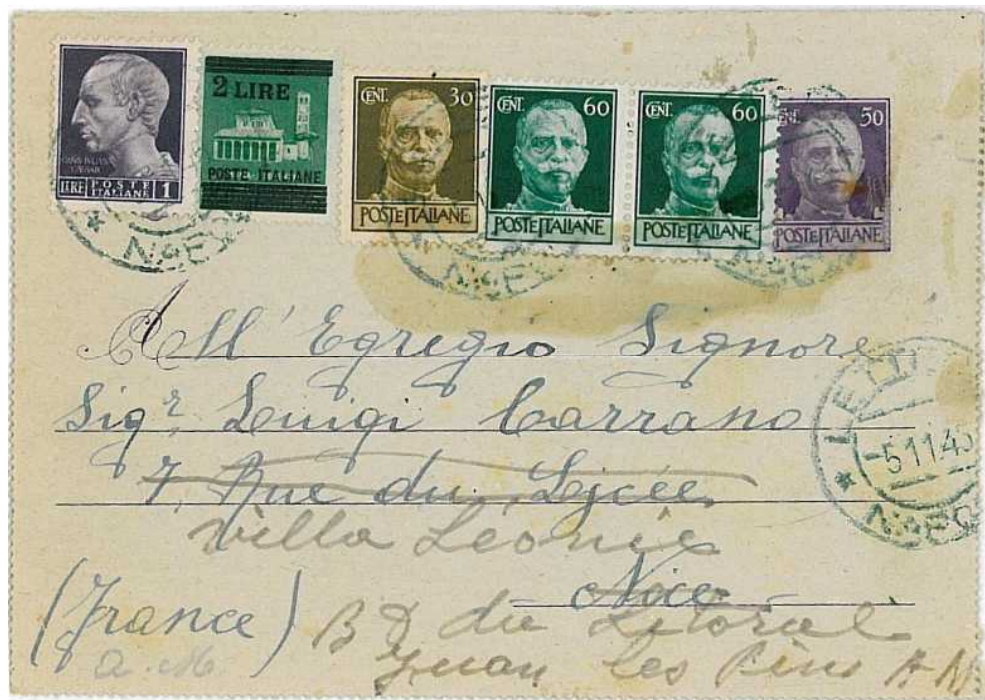 LIRE POSTE ITALIANE 1
2 LIRE
POSTE ITALIANE
CENT. 30
POSTE ITALIANE
CENT. 60
POSTE ITALIANE
CENT. 60
POSTE ITALIANE
CENT. 50
POSTE ITALIANE
All' Egregio Signore
Sigr. Luigi Carrano
7, Rue du Lycée
Villa Léonie
Nice
(France) Bd du Litoral
A. M. Juan les Pins A M
5 11 45